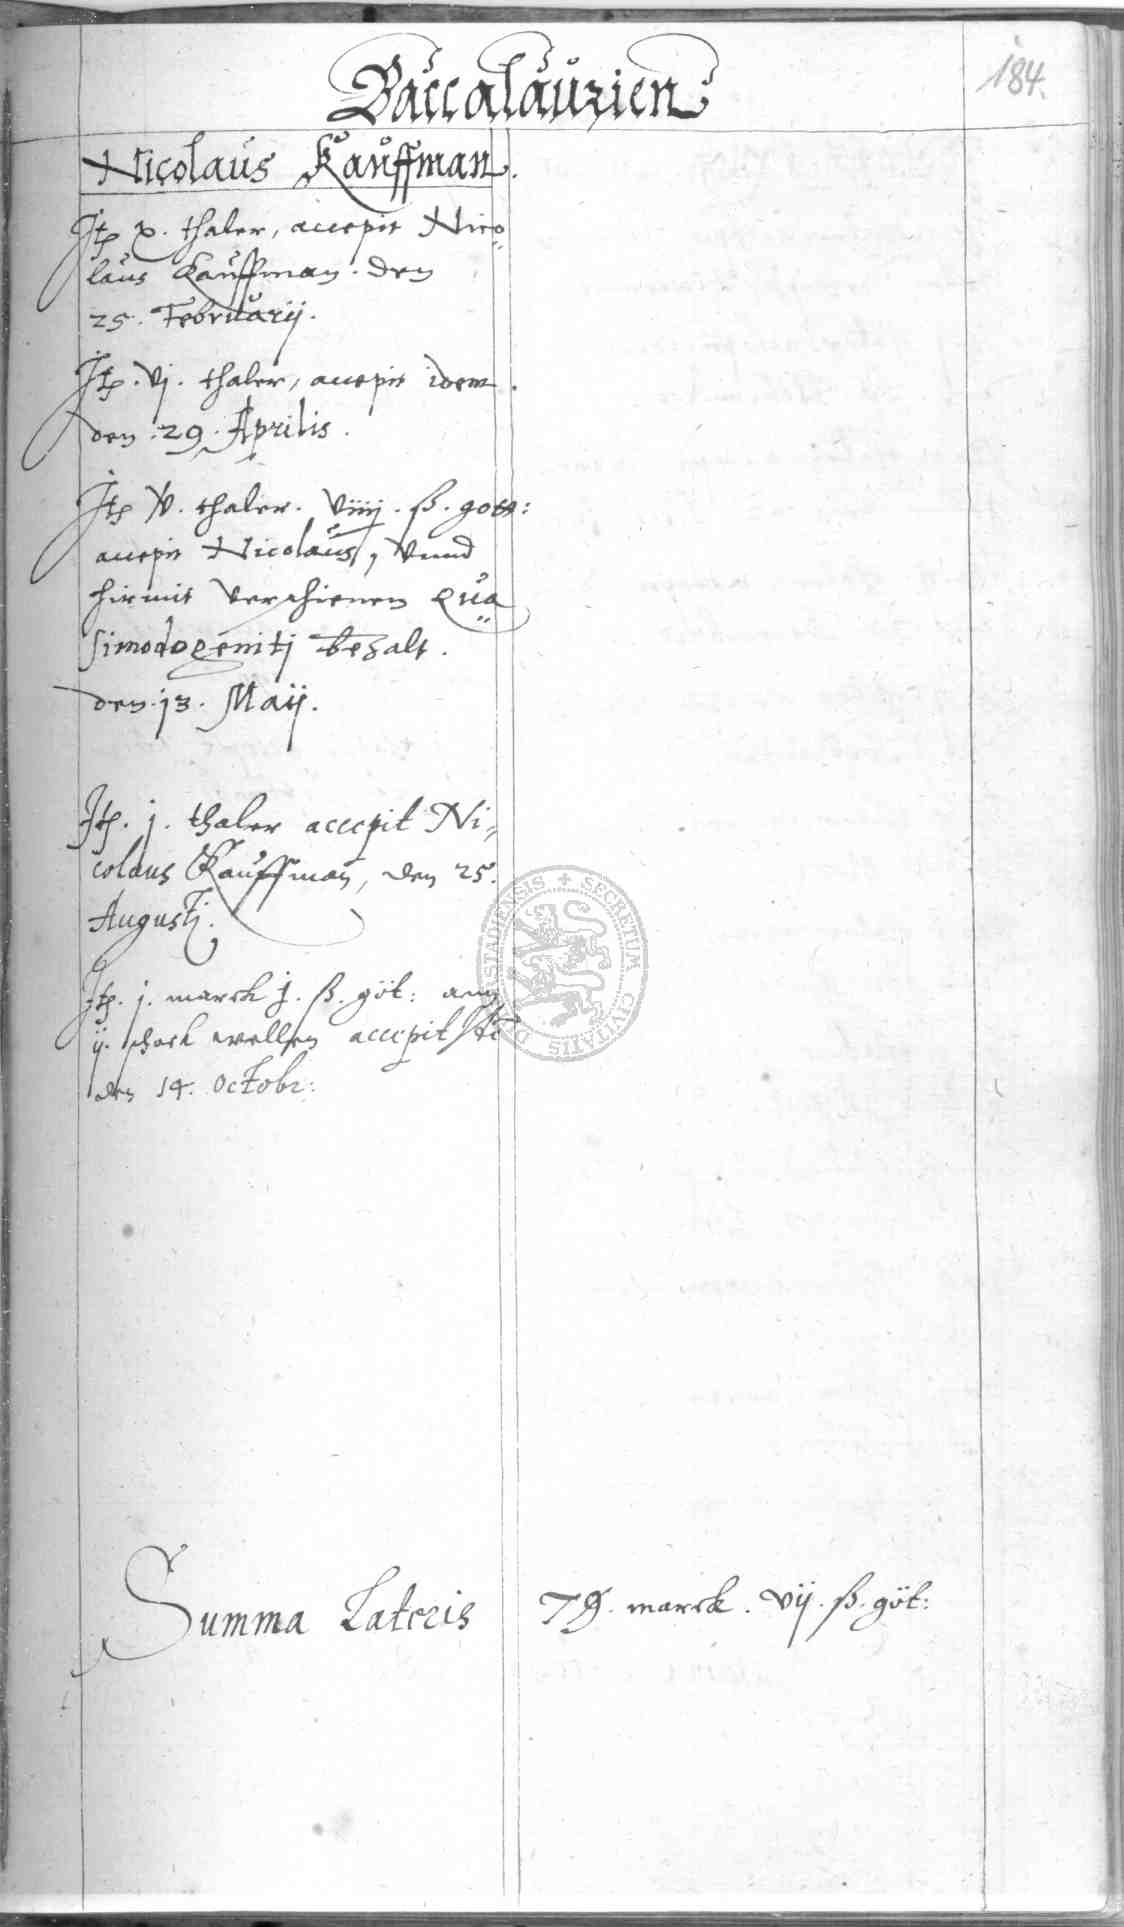 184.
Baccalaurien
Nicolaus Kauffman.
Jtem x. thaler, accepit Nico
laus Kauffman. den
25. Februarij.
Jtem. vj. thaler, accepit idem.
den. 29. Aprilis.
Jtem v. thaler. viiij. ß. gott:
accepit Nicolaus, vnnd
hirmit verschienen Qua
simodogenitj bezalt.
den. 13. Maij.
Jtem. j. thaler accepit Ni,
colaus Kauffman, den 25.
Augustj.
Jtem. j. marck j. ß. göt:
ij. schock wellen accepit
den 14. Octobr:
DARSTADIENSIS + SECRETUM CIVITATIS
Summa Lateris 79. marck. vij. ß. göt: